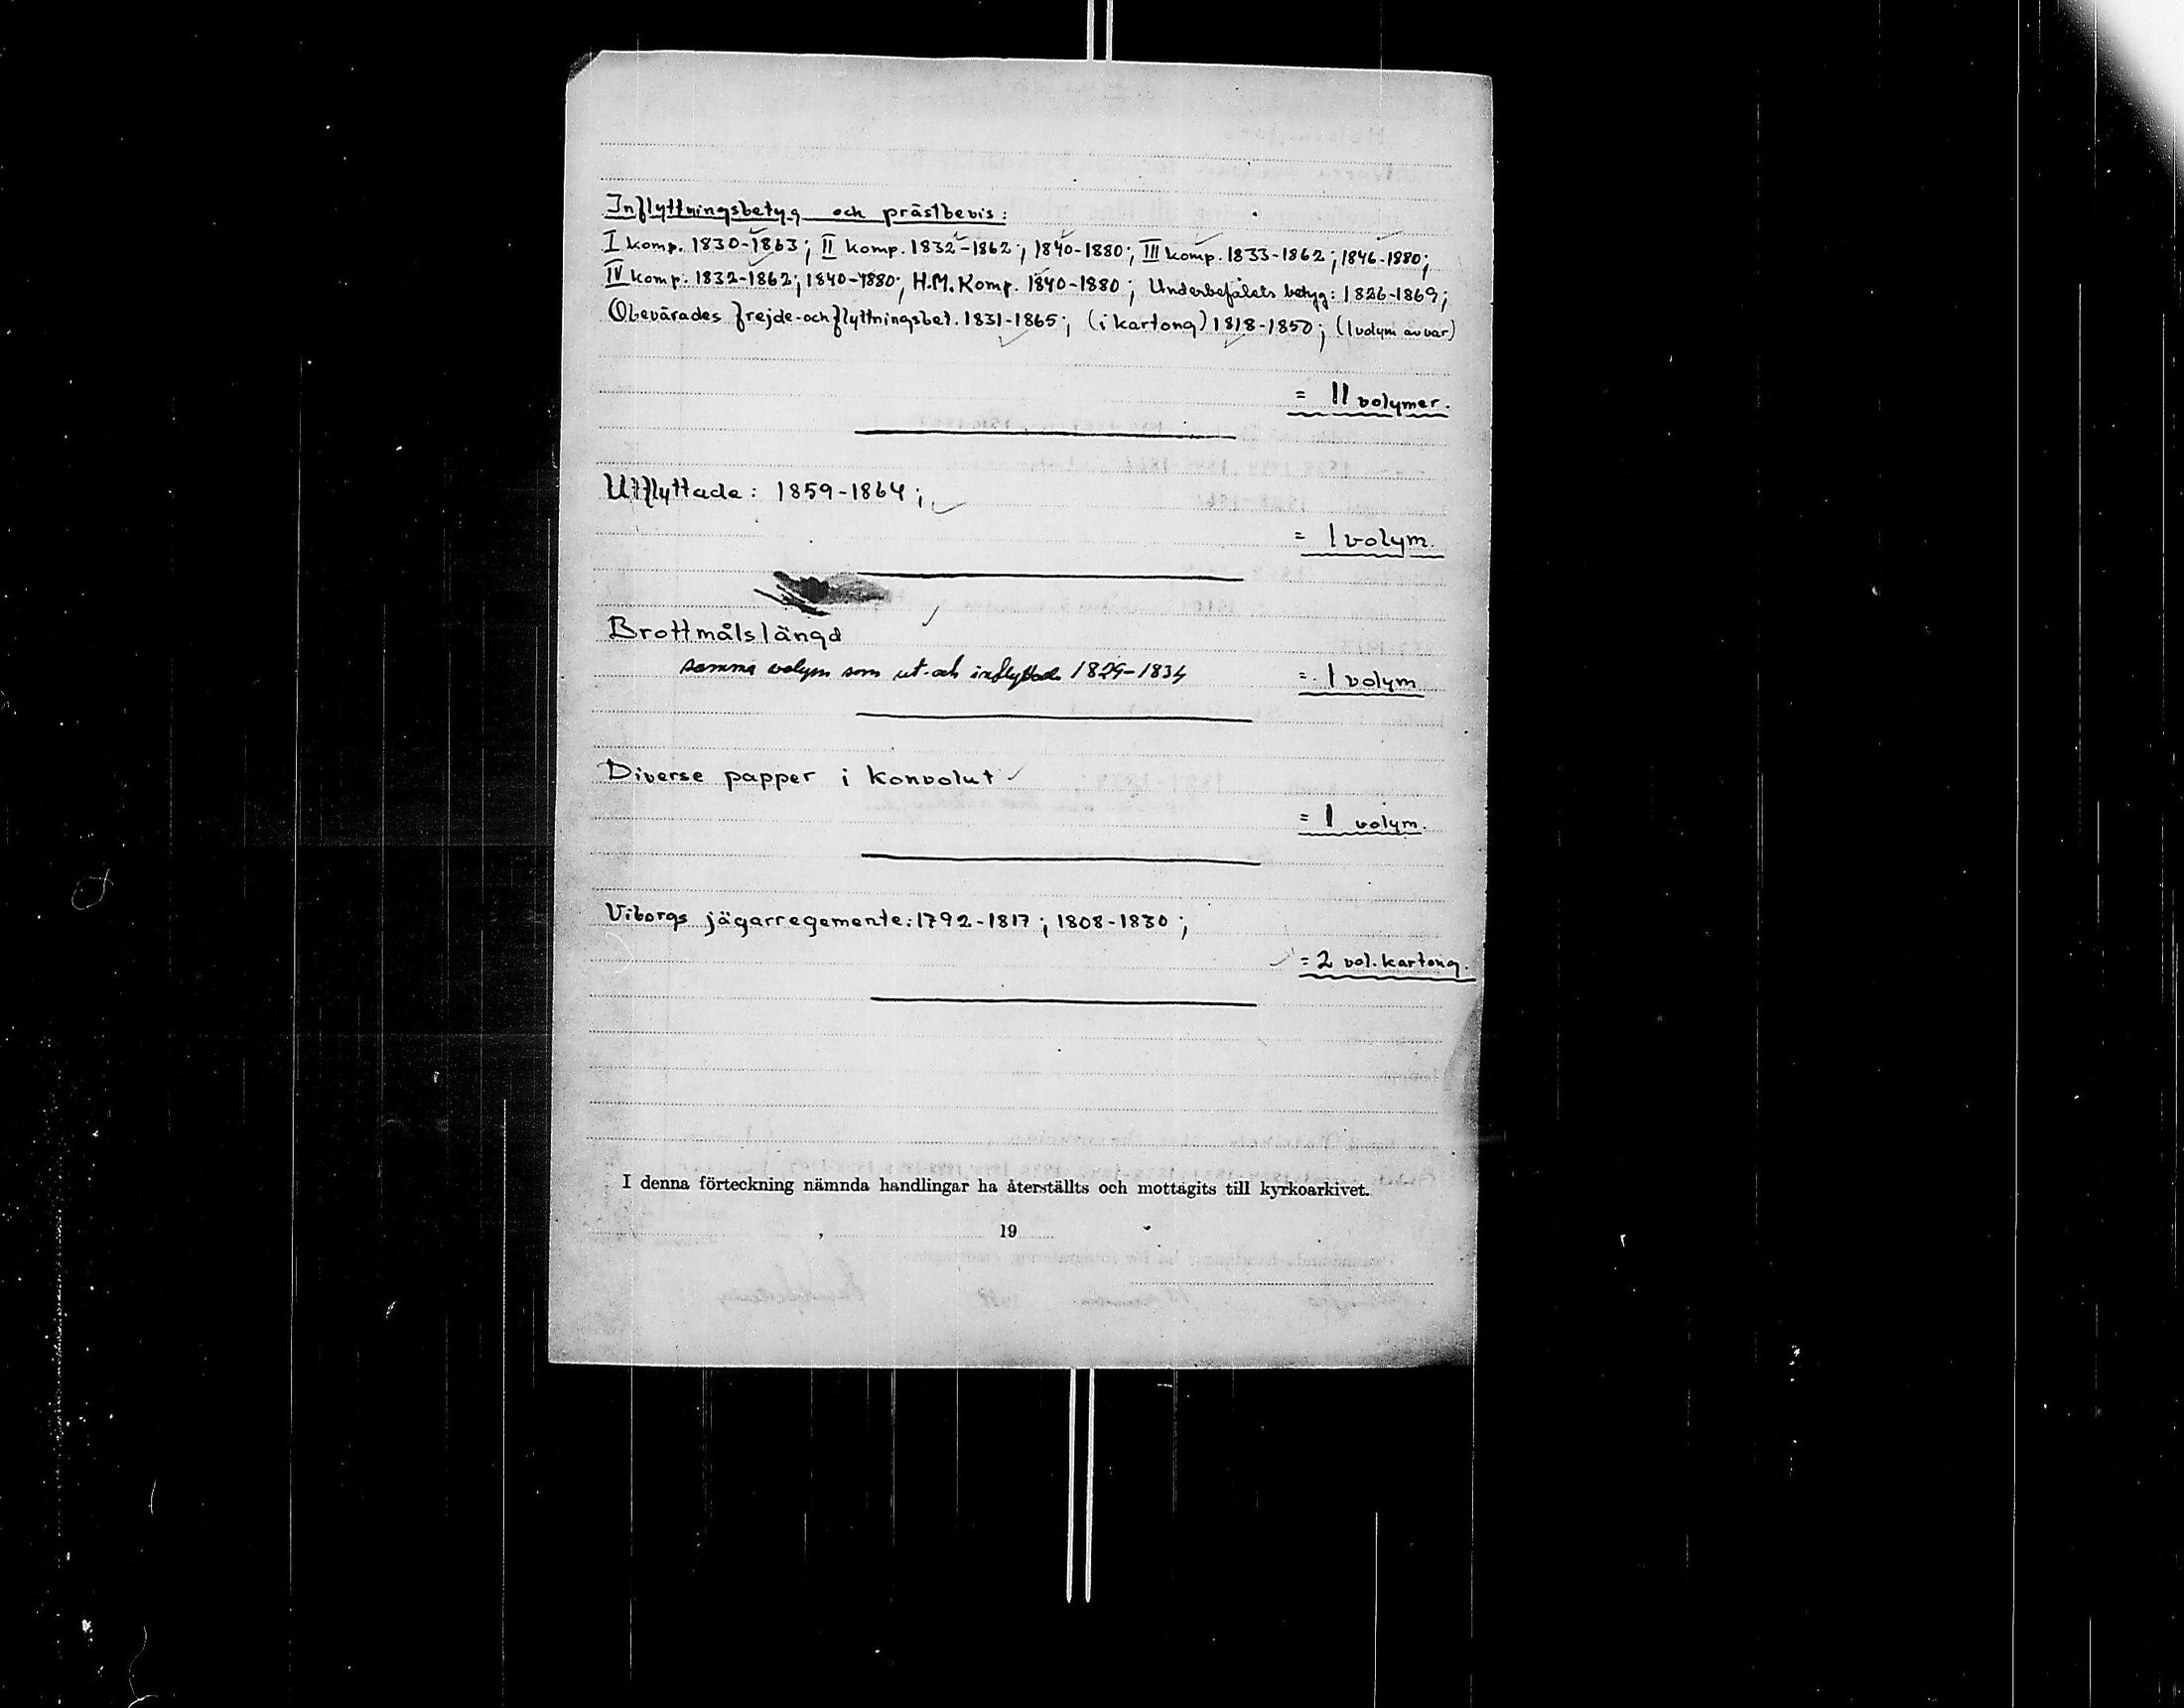 Inflyttningsbetyg och prästbevis:
I komp. 1830-1863; II komp. 1832-1862; 1840-1880; III komp. 1833-1862; 1846-1880;
IV komp: 1832-1862; 1840-1880; H.M. Komp. 1840-1880; Underbefälets betyg: 1826-1869;
Obevärades frejde-och flyttningsbet. 1831-1865; (i kartong) 1818-1850; (1 volym avvar)
= 11 volymer.
Utflyttade: 1859-1864;
= 1 volym.
Brottmålslängd
samma volym som ut- och inflyttade 1829-1834
= 1 volym
Diverse papper i konvolut
= 1 volym.
Viborgs jägarregemente: 1792-1817; 1808-1830;
= 2 vol. kartong.
I denna förteckning nämnda handlingar ha återställts och mottagits till kyrkoarkivet.
19